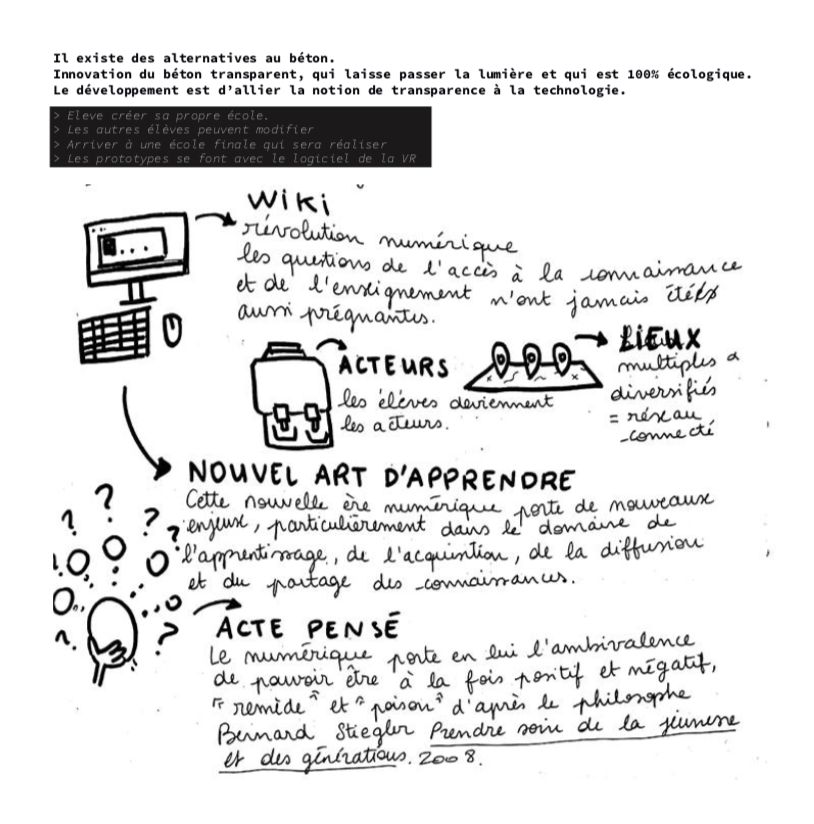 Il existe des alternatives au béton.
Innovation du béton transparent, qui laisse passer la lumière et qui est 100% écologique.
Le développement est d’allier la notion de transparence à la technologie.
> Eleve créer sa propre école.
> Les autres élèves peuvent modifier
> Arriver à une école finale qui sera réaliser
> Les prototypes se font avec le logiciel de la VR
WiKi
révolution numérique
les questions de l'accès à la connaissance
et de l'enseignement n'ont jamais étés
aussi prégnantes.
ACTEURS
les élèves deviennent
les acteurs.
LIEUX
multiples &
diversifiés
= réseau
connecté
NOUVEL ART D'APPRENDRE
Cette nouvelle ère numérique porte de nouveaux
enjeux, particulièrement dans le domaine de
l'apprentissage, de l'acquisition, de la diffusion
et du partage des connaissances.
ACTE PENSÉ
Le numérique porte en lui l'ambivalence
de pouvoir être à la fois positif et négatif,
"remède" et "poison" d'après le philosophe
Bernard Stiegler Prendre soin de la jeunesse
et des générations. 2008.